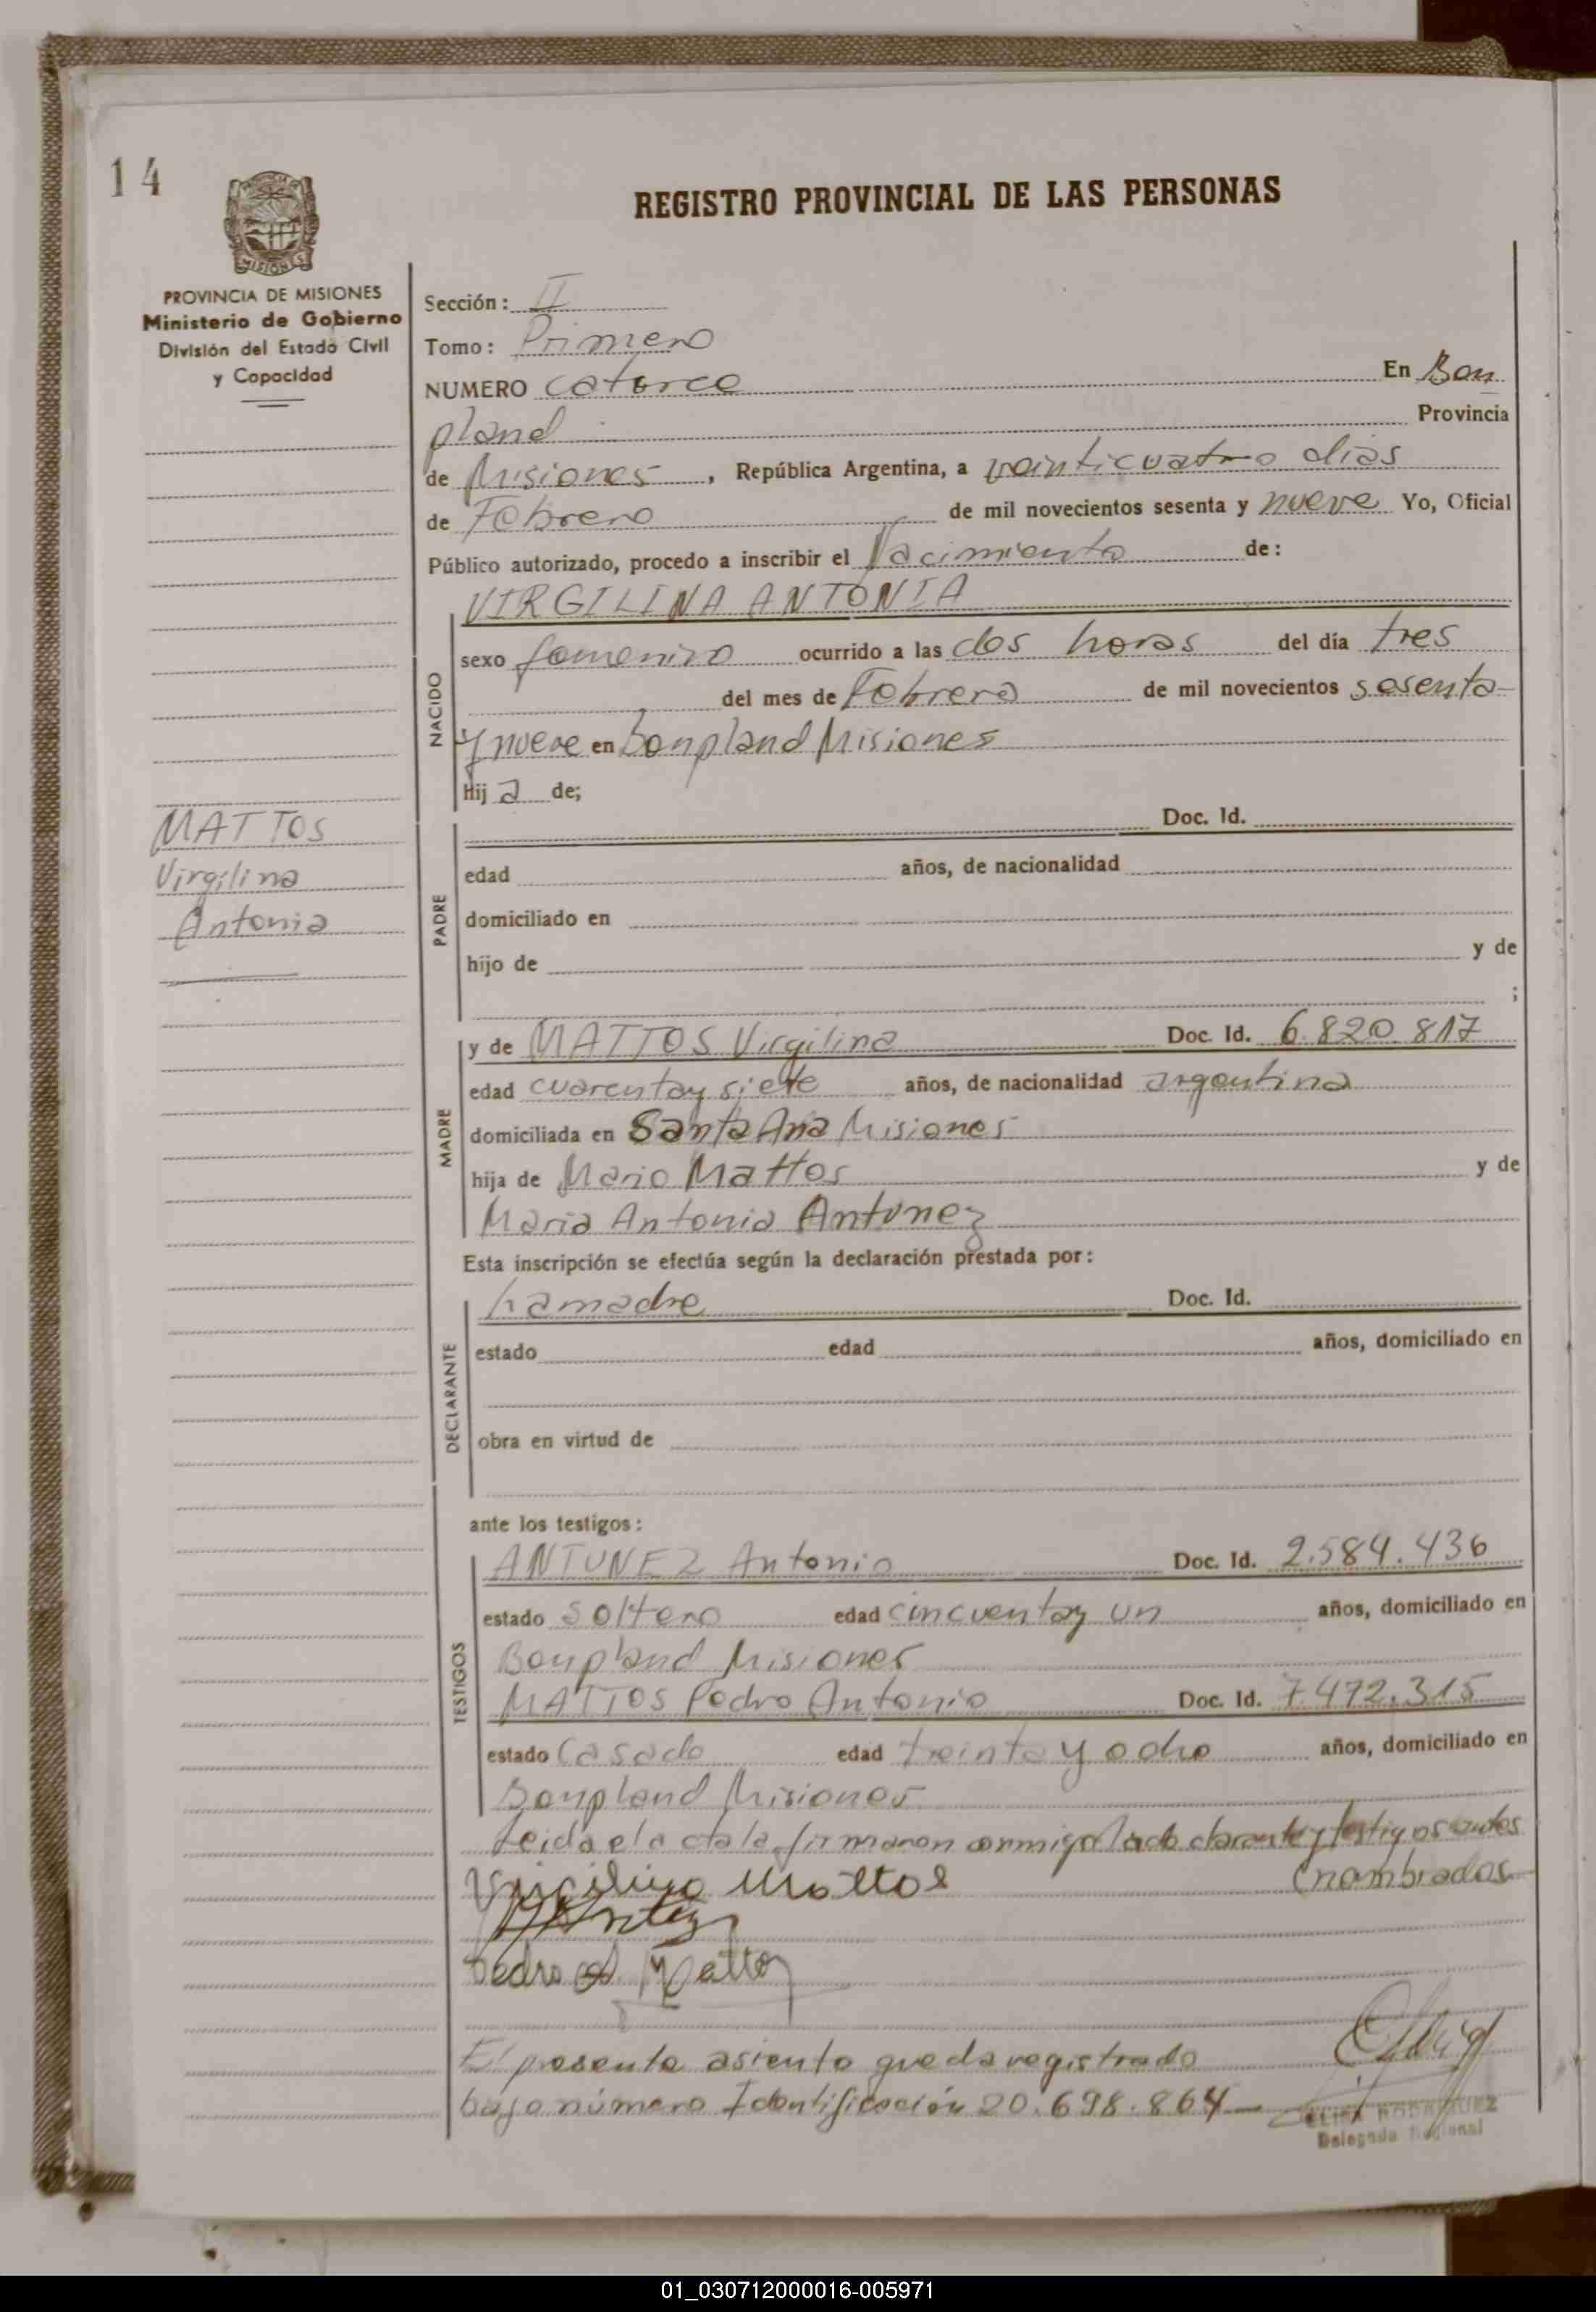 14
REGISTRO PROVINCIAL DE LAS PERSONAS
PROVINCIA DE MISIONES
Ministerio de Gobierno
División del Estado Civil
y Capacidad
MATTOS
Virgilina
Antonia
Sección: II
Tomo: Primero
NUMERO catorce En Bon
pland Provincia
de Misiones, República Argentina, a veinticuatro dias
de Febrero de mil novecientos sesenta y nueve Yo, Oficial
Público autorizado, procedo a inscribir el Nacimiento de:
VIRGILINA ANTONIA
NACIDO
sexo femenino ocurrido a las dos horas del día tres
del mes de Febrero de mil novecientos sesenta
y nueve en Bonpland Misiones
Hij a de;
PADRE
Doc. Id.
edad años, de nacionalidad
domiciliado en
hijo de y de
;
MADRE
y de MATTOS Virgilina Doc. Id. 6.820.817
edad cuarentay siete años, de nacionalidad argentina
domiciliada en Santa Ana Misiones
hija de Mario Mattos y de
Maria Antonia Antunez
Esta inscripción se efectúa según la declaración prestada por:
DECLARANTE
La madre Doc. Id.
estado edad años, domiciliado en
obra en virtud de
ante los testigos:
TESTIGOS
ANTUNEZ Antonio Doc. Id. 2.584.436
estado soltero edad cincuentay un años, domiciliado en
Bonpland Misiones
MATTOS Pedro Antonio Doc. Id. 7.472.315
estado Casado edad treinta y ocho años, domiciliado en
Bonpland Misiones
Leida el acta la firmaron conmigo la declarante y testigos antes
Virgilina Mattos (nombrados
Pedro A. Mattos
El presente asiento queda registrado
bajo número Identificación 20.698.864
ELISA RODRIGUEZ
Delegada Regional
01_030712000016-005971